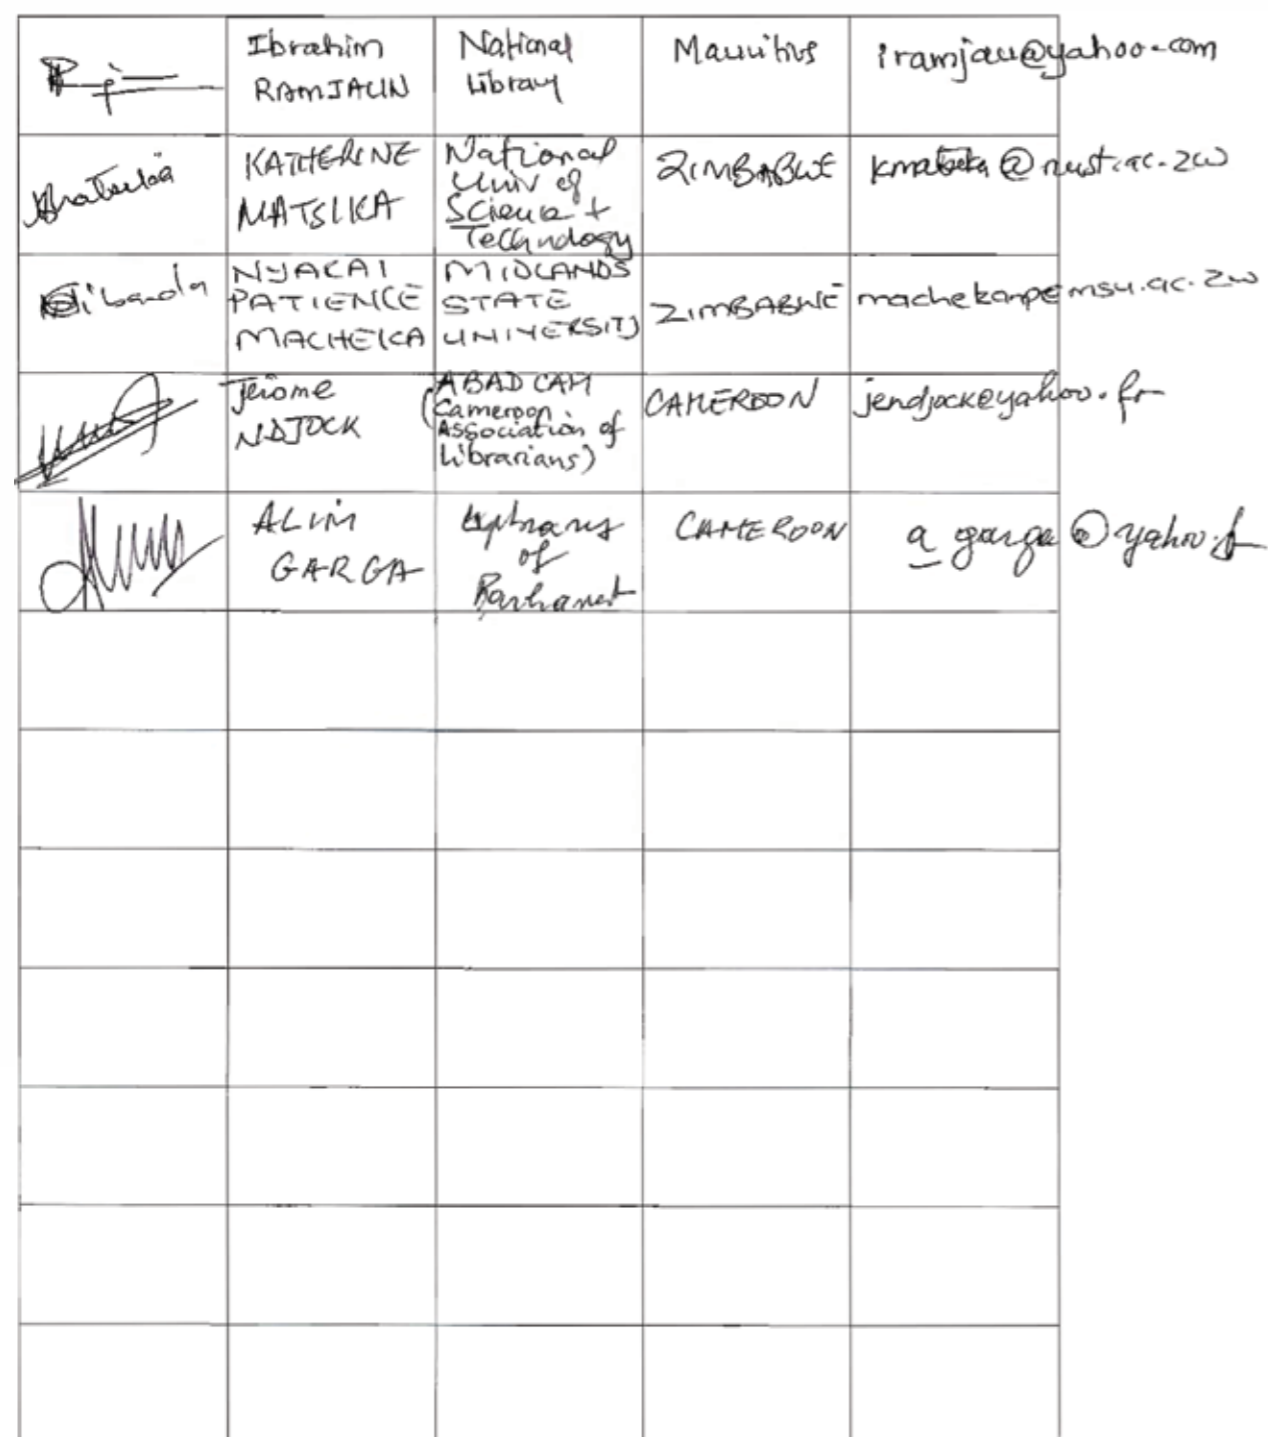 Ibrahim
RAMJAUN
National
Library
Mauritius
iramjau@yahoo.com
KATHERINE
MATSIKA
National
Univ of
Science +
Technology
ZIMBABWE
kmatsika@nust.ac.zw
NYACAI
PATIENCE
MACHEKA
MIDLANDS
STATE
UNIVERSITY
ZIMBABWE
machekanp@msu.ac.zw
Jerome
NDJOCK
ABAD CAM
(Cameroon
Association of
Librarians)
CAMEROON
jendjock@yahoo.fr
ALIM
GARGA
of
CAMEROON
a_garga@yahoo.fr